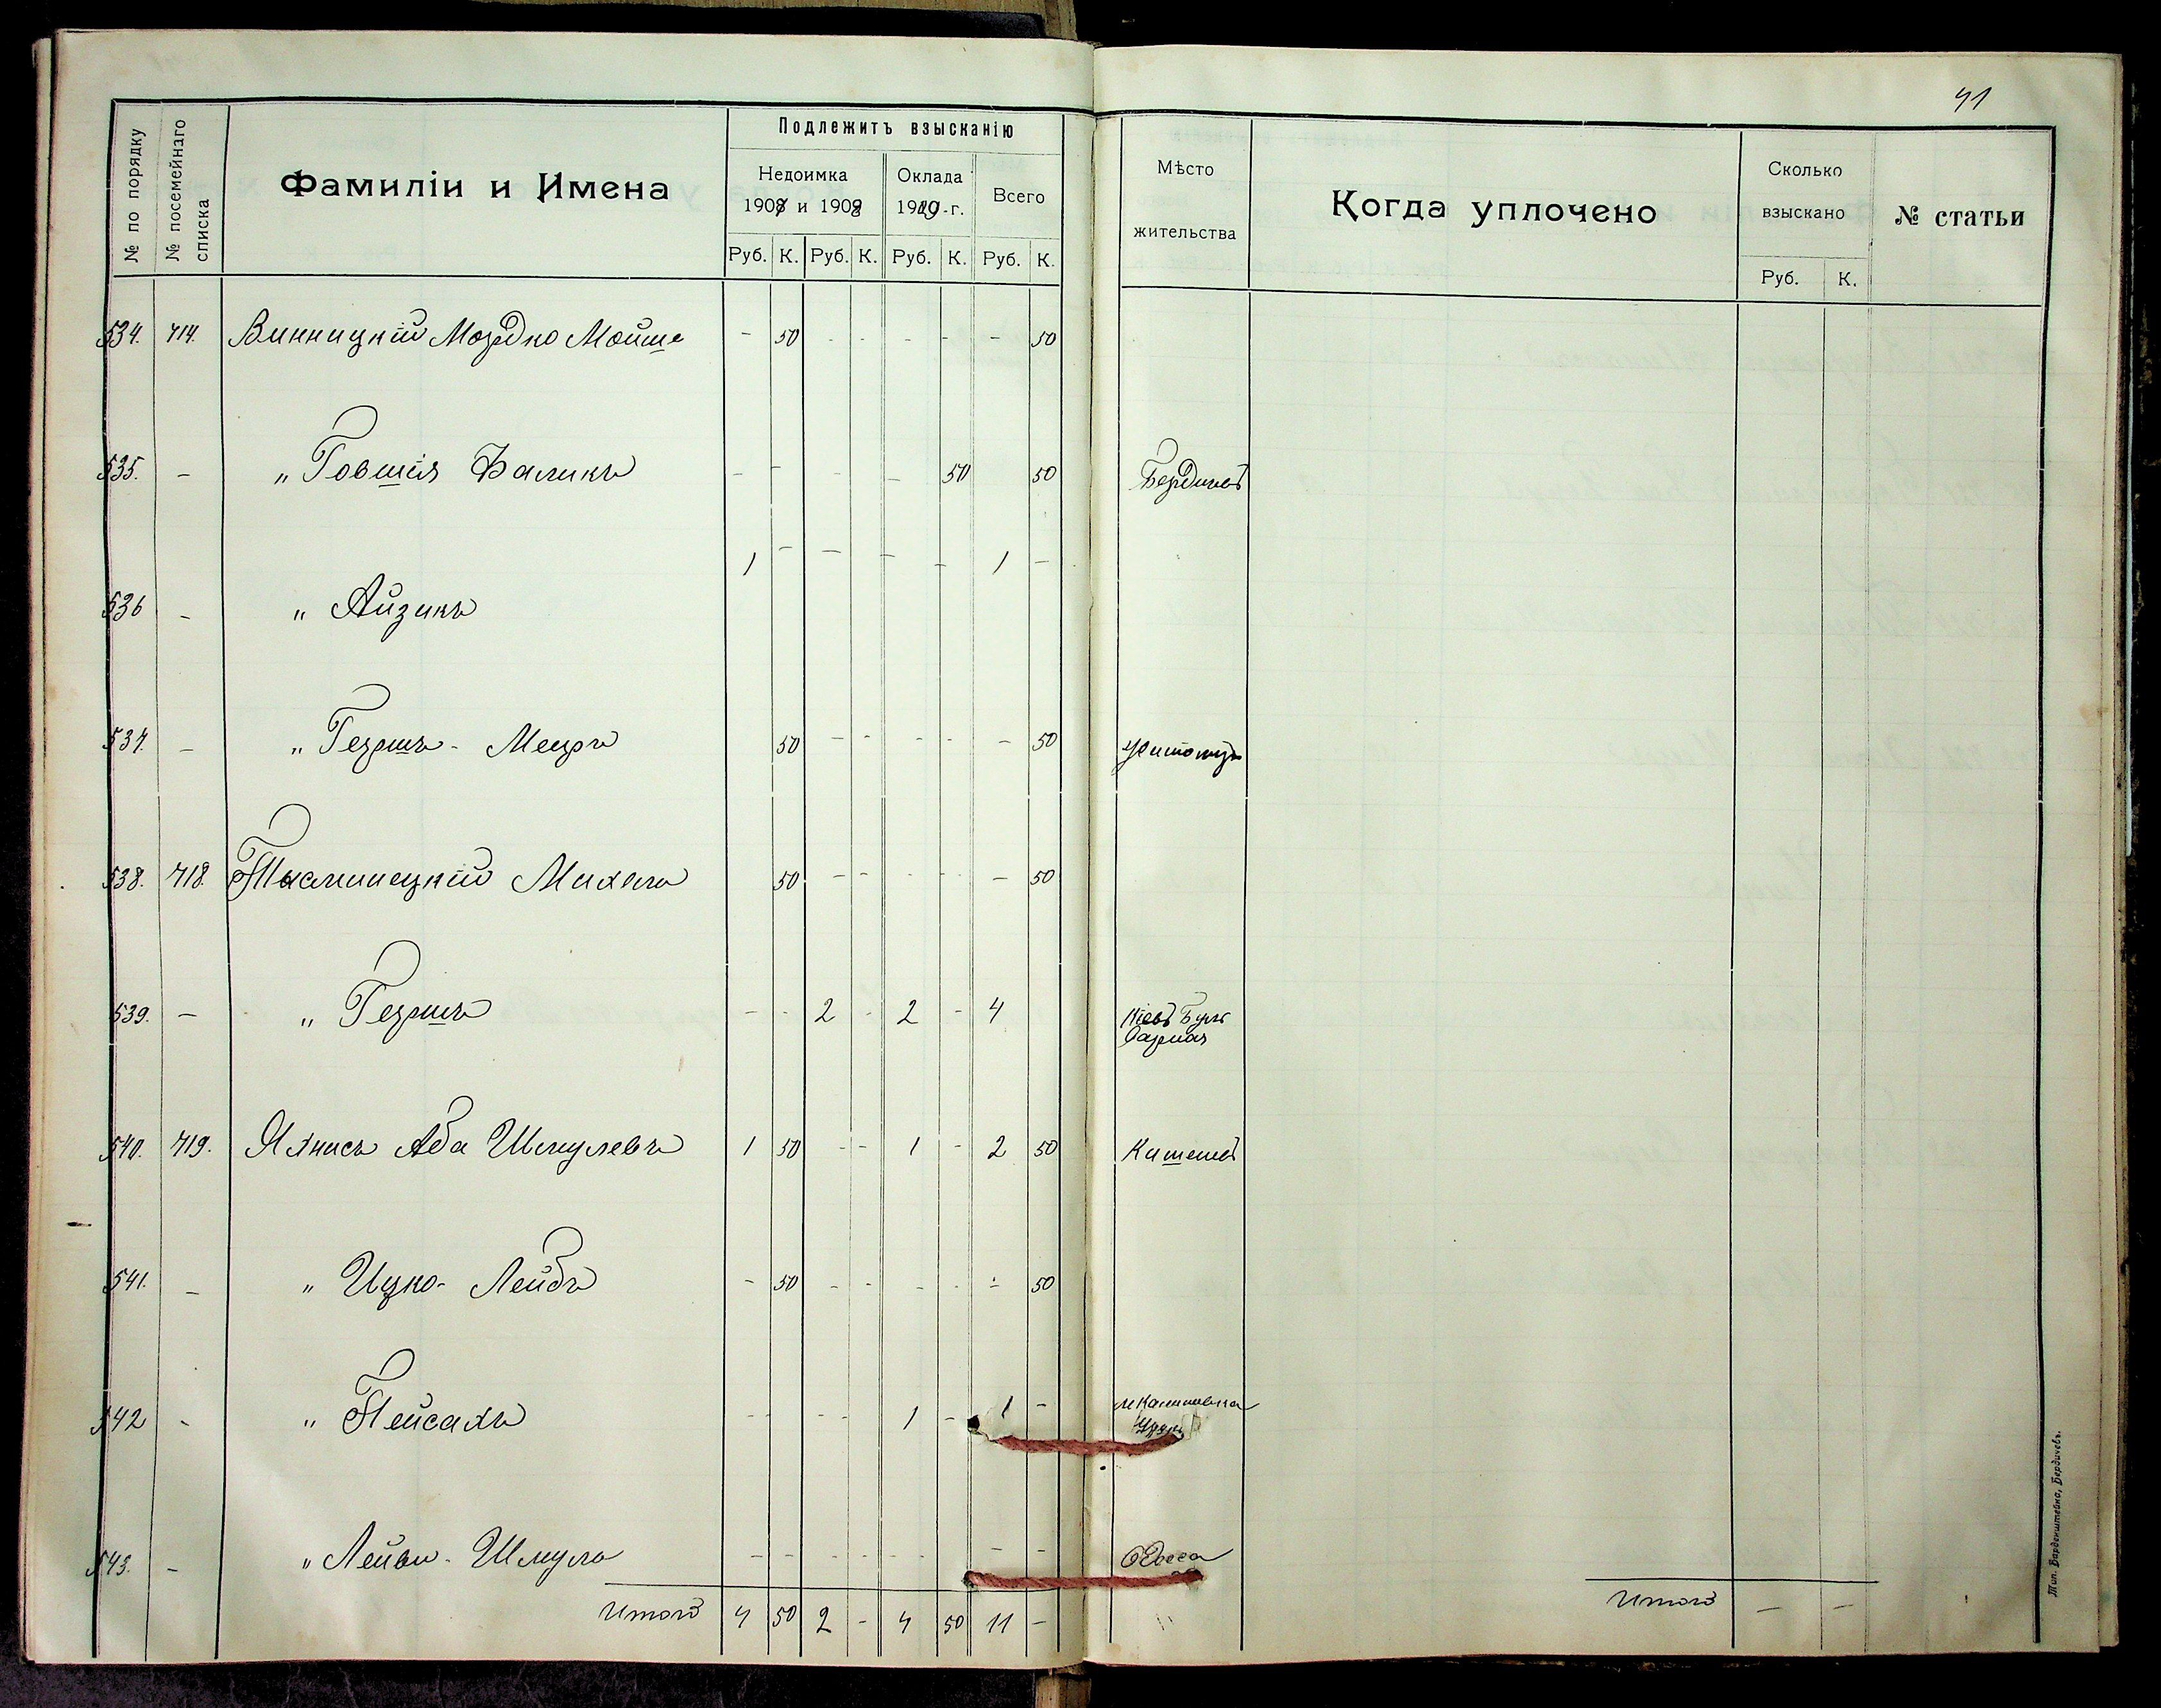 41
№ по порядку № посемейнаго списка Фамиліи и Имена Подлежитъ взысканію
Недоимка 1908 и 1908 Оклада 1909-г. Всего
Руб. К. Руб. К. Руб. К. Руб. К.
Мѣсто жительства Когда уплочено Сколько взыскано № статьи
Руб. К.
534. 714. Винницкій Мордко Мойше - 50 - - - - - 50
535. - „ Говшія Фаликъ - - - - 50 50 Бердичевъ
1 - - - - 1 -
536 - „ Айзикъ
537. - „ Гершъ - Мееръ 50 - - - - - 50 Житомиръ
538. 718. Михель 50 - - - - - 50
539. - „ Гершъ - - 2 - 2 - 4 Кіевъ
540. 719. Яхнисъ Аба Шмулевъ 1 50 - - 1 - 2 50 Кишеневъ
541. - „ Ицко - Лейбъ - 50 - - - - - 50
542 - „ Пейсахъ - - - - 1 - 1 - м Калиновка
543. - „ Лейви - Шмуль - - - - - - - - Одесса
Итого 4 50 2 - 4 50 11 -
Итого - -
Тип. Барденштейна, Бердичевъ.